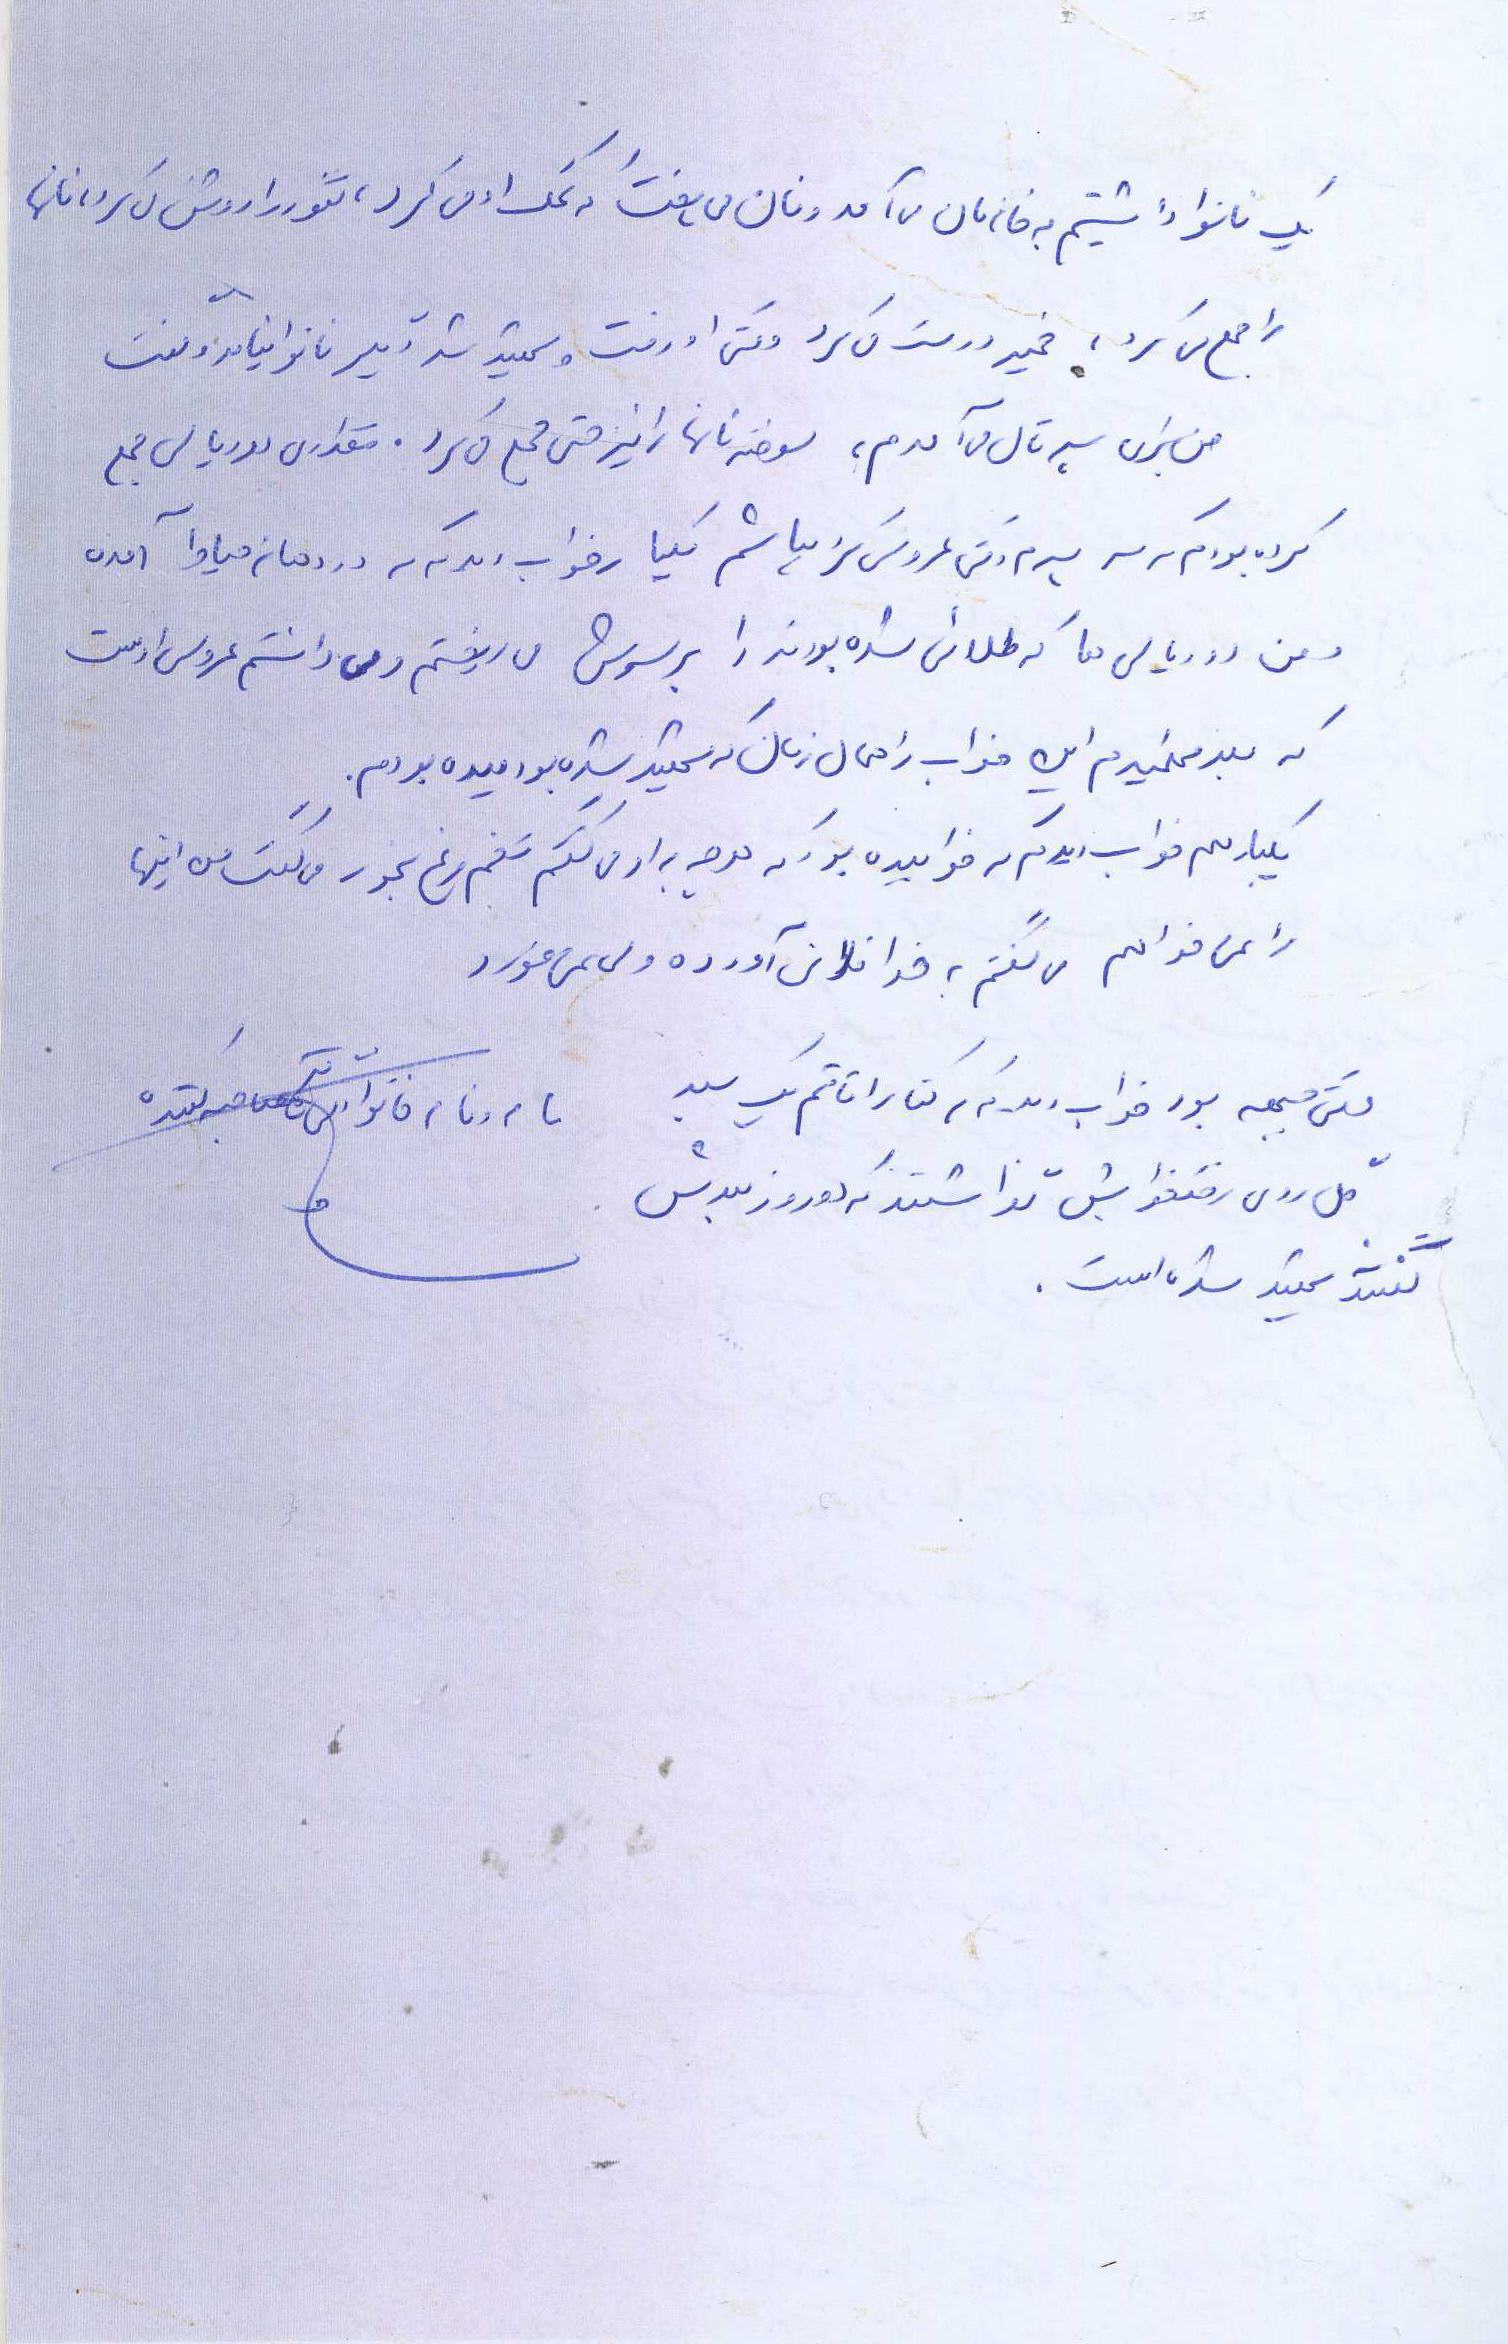 یک نانوا داشتیم به خانه مان می آمد و نان می پخت که کمک او می کرد، تنور را روشن می کرد، نانها
را جمع می کرد، خمیر درست می کرد وقتی او رفت و شهید شد دیگر نانوا نیامد و گفت
من برای پسرتان می آمدم، سوخته نانها را نیز حتی جمع می کرد. مقداری دو ریالی جمع
کرده بودم که سر پسرم وقتی عروسی کرد بپاشم یکبار خواب دیدم که در دهانه میاوا آمده
و من دو ریالی ها که طلائی شده بودند را بر سرش می ریختم و می دانستم عروسی اوست
که بعد فهمیدم این خواب را همان زمان که شهید شده بود دیده بودم.
یکبار هم خواب دیدم که خوابیده بود که هرچه به او می گفتم تخم مرغ بخور می گفت من اینها
را نمی خواهم می گفتم به خدا فلانی آورده ولی نمی خورد
وقتی جبهه بود خواب دیدم که کنار اتاقم یک سبد
گل روی رختخوابش گذاشتند که دو روز بعدش
گفتند شهید شده است.